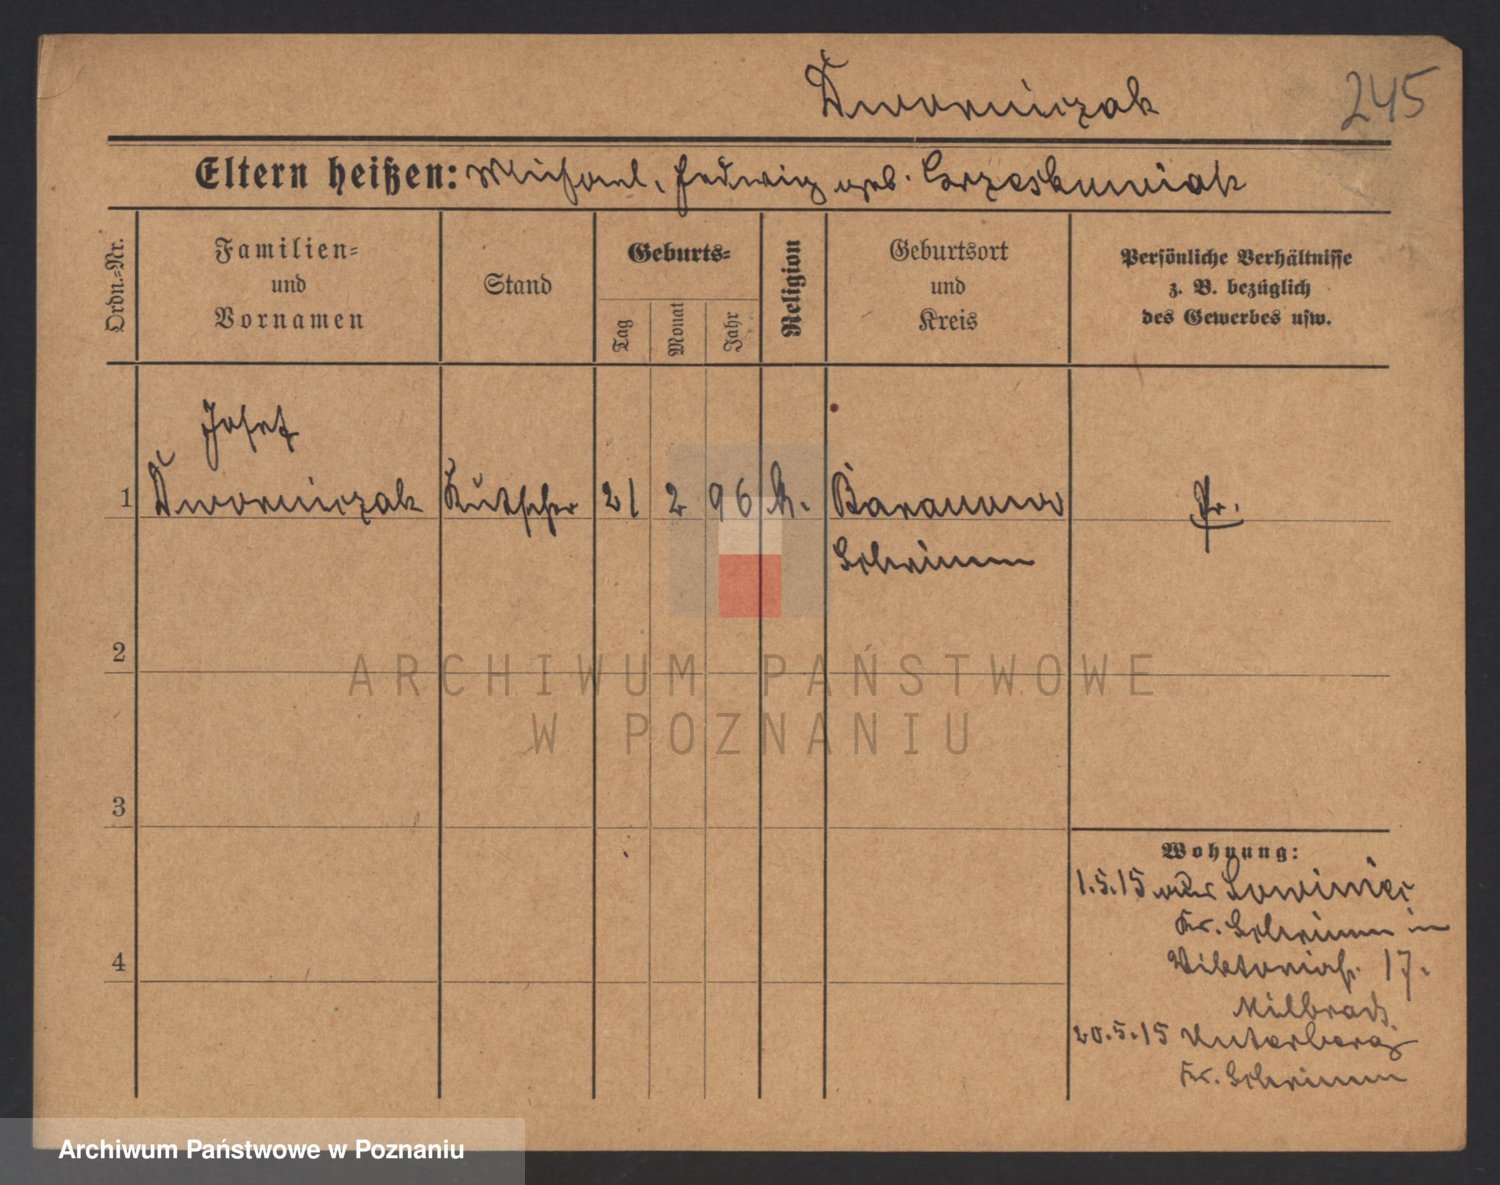 Dworniczak 245
Eltern heißen: Michael, Hedwig geb. Grzeskowiak
Ordn.-Nr.
Familien-
und
Vornamen
Stand
Geburts-
Tag
Monat
Jahr
Religion
Geburtsort
und
Kreis
Persönliche Verhältnisse
z. B. bezüglich
des Gewerbes usw.
Josef
1 Dworniczak Kutscher 21 2 96 k. Baranowo Pr.
Schrimm
2
3
4
Wohnung:
1.5.15 aus Lowiniec
Kr. Schrimm in
Viktoriastr. 17.
Milbradt
20.5.15 Unterberg
Kr. Schrimm
ARCHIWUM PAŃSTWOWE
W POZNANIU
Archiwum Państwowe w Poznaniu